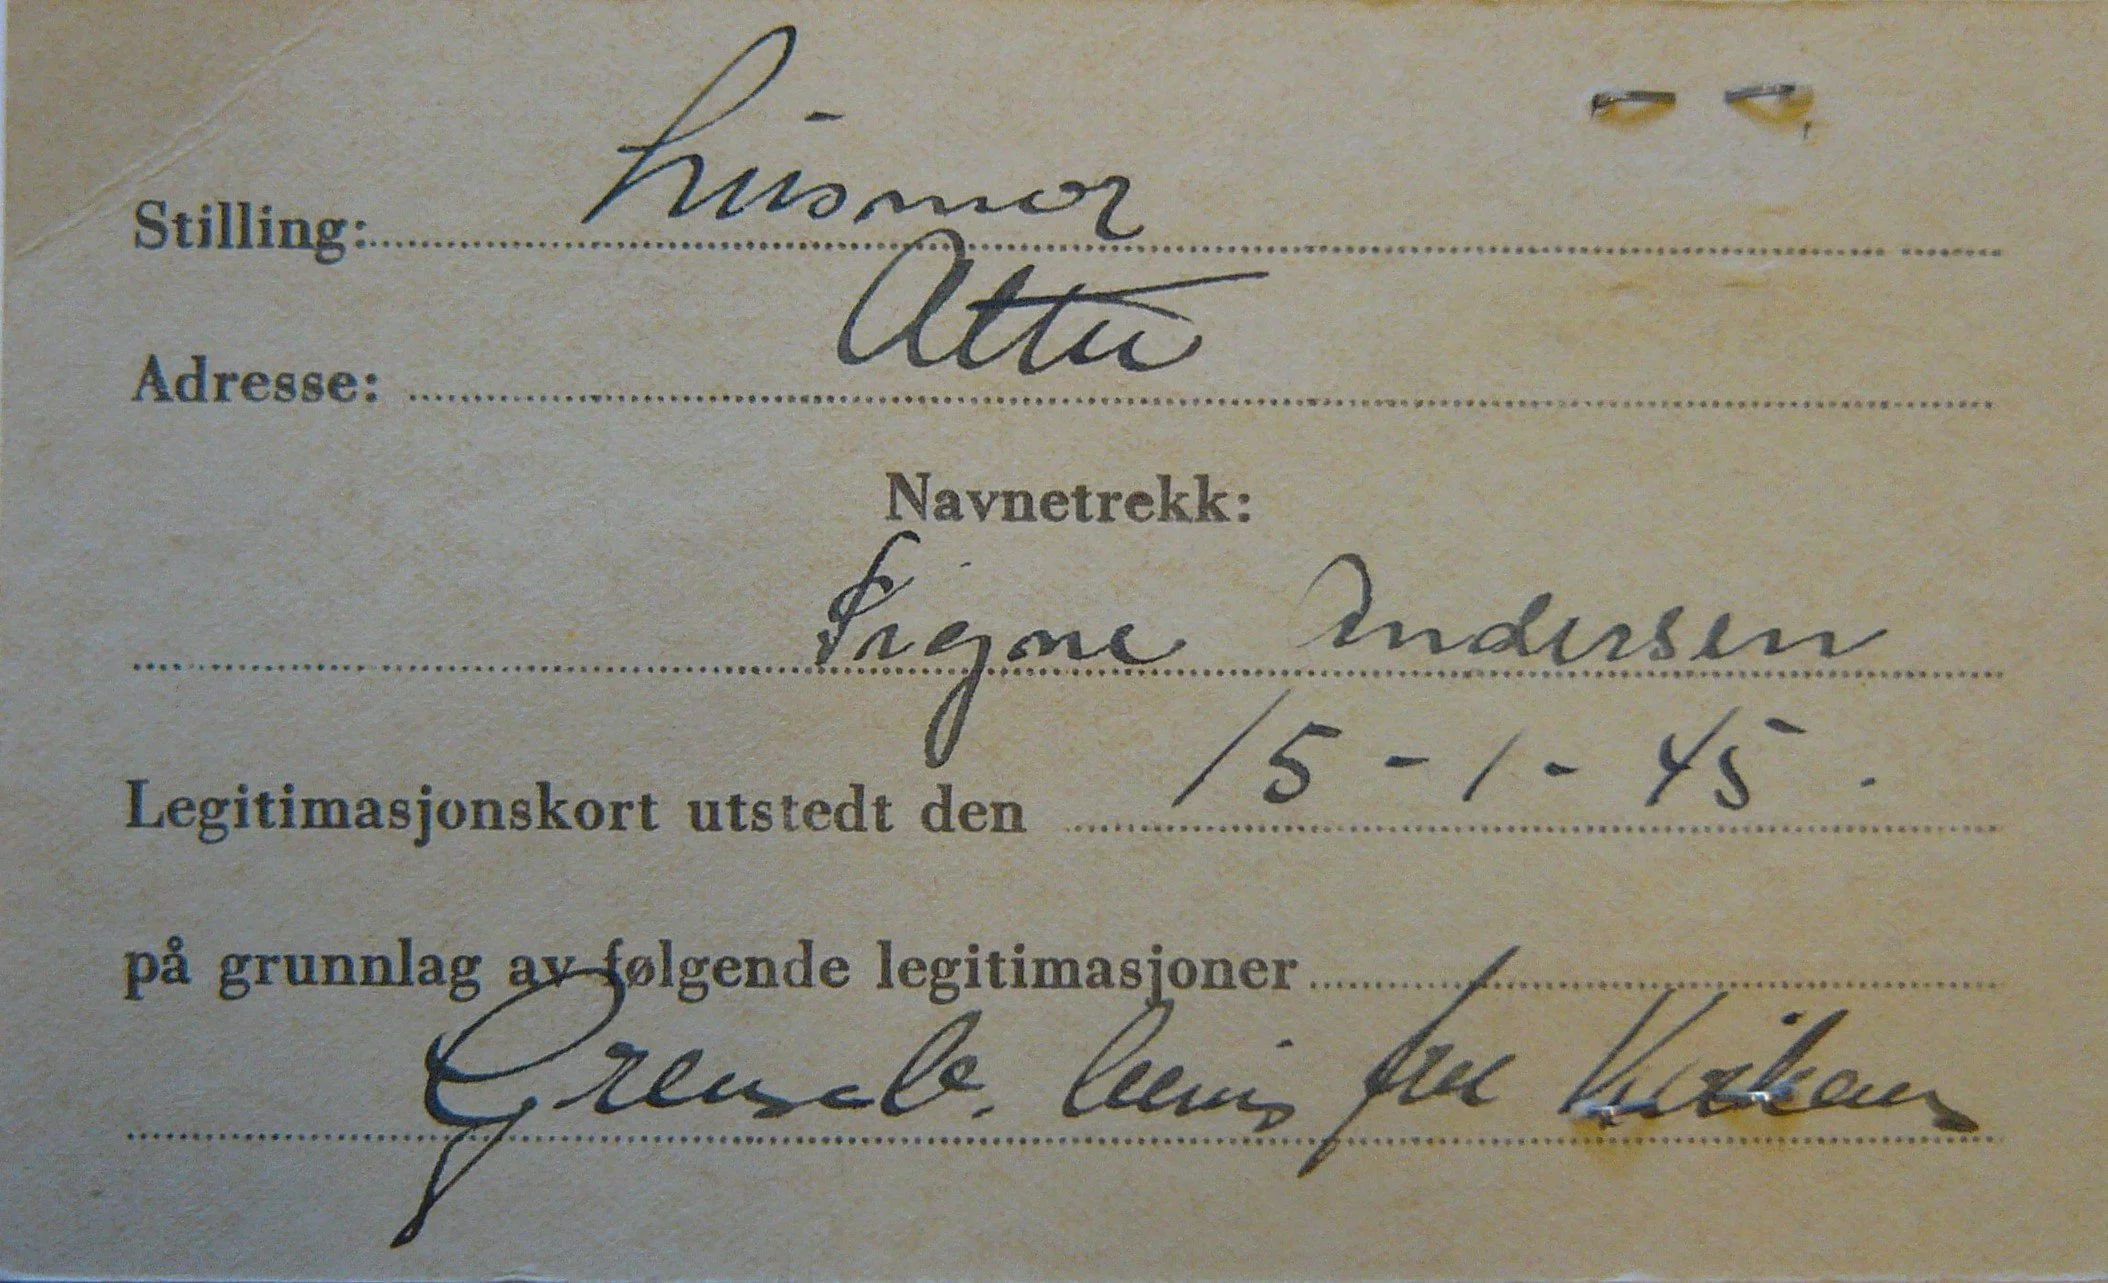 Stilling: husmor
Adresse: Atter
Navnetrekk:
Signe Andersen
Legitimasjonskort utstedt den 15-1-45.
på grunnlag av følgende legitimasjoner
Grenseb. bevis fra Kirkenes